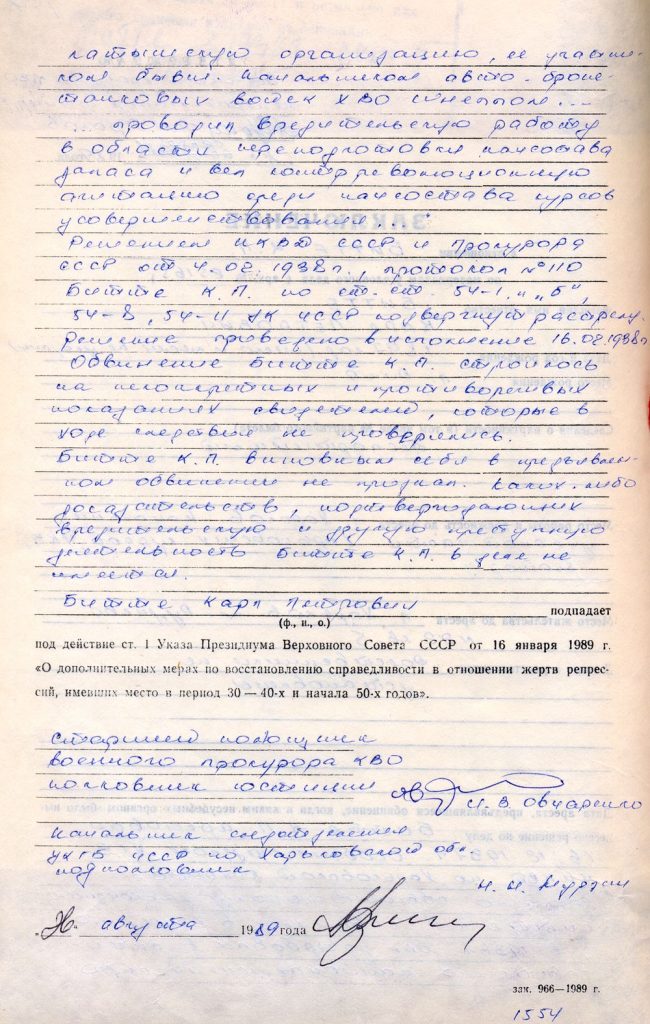 латышскую организацию, ее участни-
ком бывш. начальником авто-броне-
танковых войск ХВО Игнелом...
... проводил вредительскую работу
в области переподготовки начсостава
запаса и вел контрреволюционную
агитацию среди начсостава курсов
усовершенствования...
Решением НКВД СССР и Прокурора
СССР от 4.02 1938г, протокол №110
Битте К.П. по ст. ст. 54-1 "б",
54-8, 54-11 УК УССР подвергнут расстрелу.
Решение приведено в исполнение 16.02.1938г
Обвинение Битте К.П. строилось
на неконкретных и противоречивых
показаниях свидетелей, которые в
ходе следствия не проверялись.
Битте К.П. виновным себя в предъявлен-
ном обвинении не признал. Каких-либо
доказательств, подтверждающих
вредительскую и другую преступную
деятельность Битте К.П. в деле не
имеется.
Битте Карл Петрович подпадает
(ф., и., о.)
под действие ст. 1 Указа Президиума Верховного Совета СССР от 16 января 1989 г.
«О дополнительных мерах по восстановлению справедливости в отношении жертв репрес-
сий, имевших место в период 30—40-х и начала 50-х годов».
Старший помощник
военного прокурора КВО
полковник юстиции
И.В. Овчаренко
Начальник следотделения
УКГБ УССР по Харьковской обл.
подполковник
Н.Н. Мурзин
августа 1989 года
зак. 966—1989 г.
1554